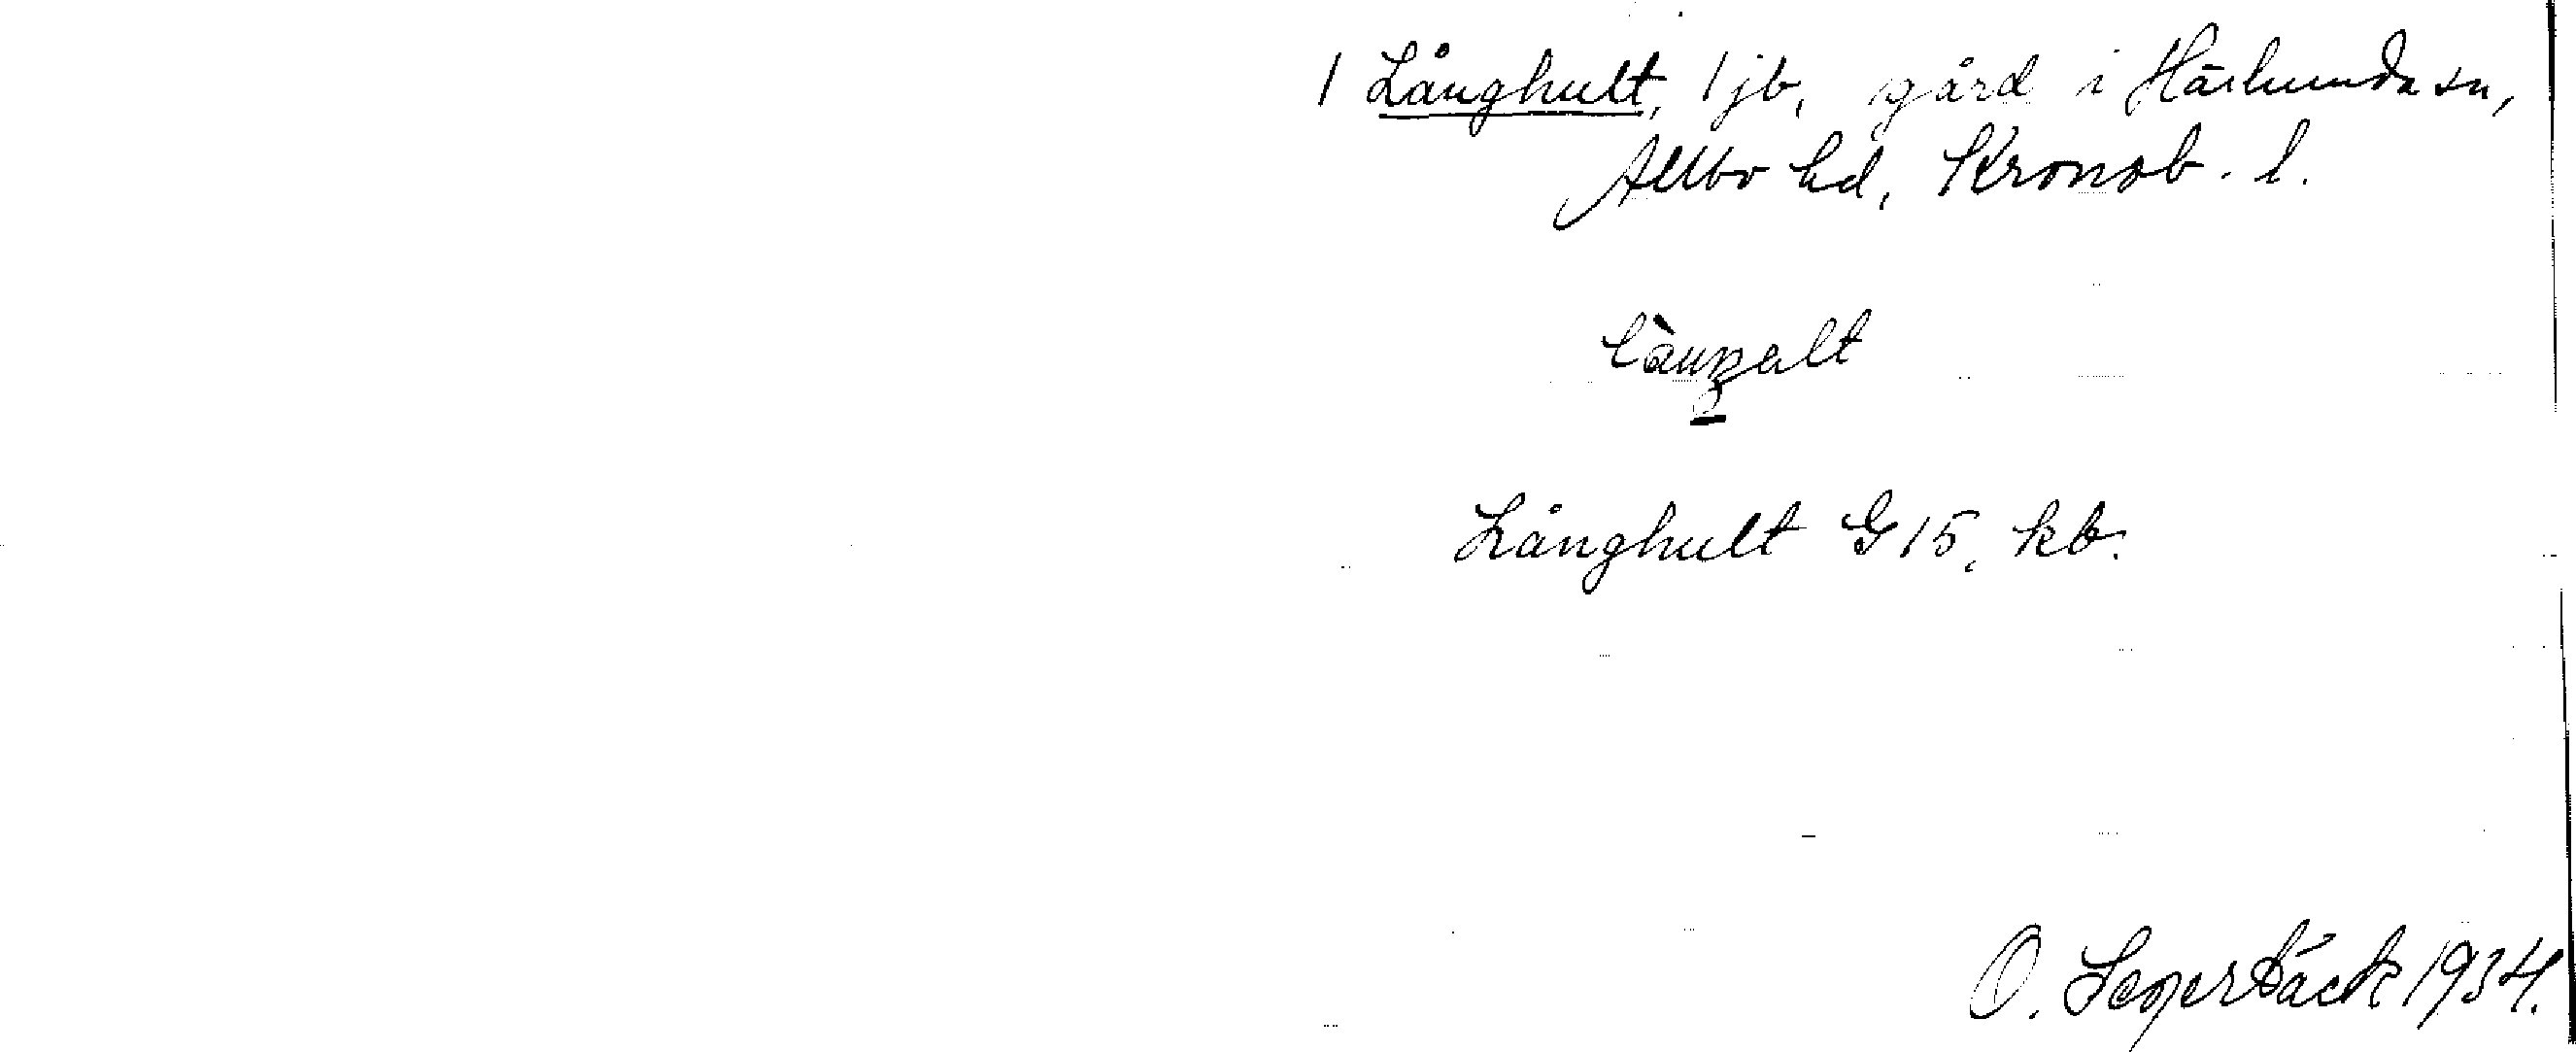 1 Långhult, 1 jb, gård i Härlunda sn,
Allbo hd, Kronob. l.
Långhult G 15, kb.
O. Segerbäck 1934.